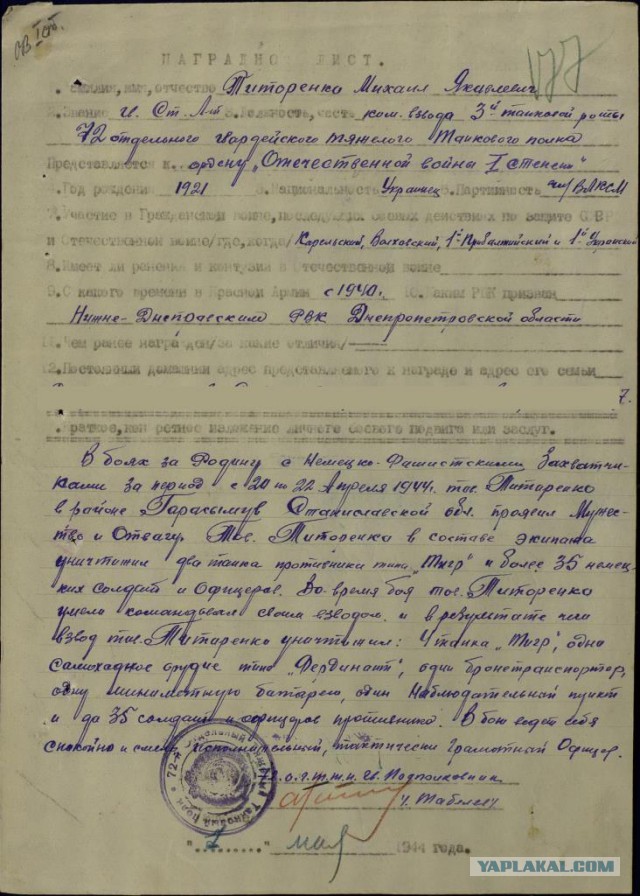 ОВ Iст.
177
НАГРАДНОЙ ЛИСТ.
1. Фамилия, имя, отчество Титоренко Михаил Яковлевич
2. Звание гв. Ст. Л-т 3. Должность, часть ком. взвода 3й танковой роты
72 отдельного гвардейского тяжелого танкового полка
Представляется к ордену „Отечественной войны I степени"
4. Год рождения 1921 5. Национальность Украинец 6. Партийность чл/ВЛКСМ
7. Участие в Гражданской войне, последующих боевых действиях по защите СССР
и Отечественной войне/где, когда/ Карельский, Волховский, 1й Прибалтийский и 1й Украинский
8. Имеет ли ранения и контузии в Отечественной войне
9. С какого времени в Красной Армии с 1940г. 10. Каким РВК призван
Нижне-Днепровским РВК Днепропетровской области
11. Чем ранее награжден/за какие отличия/
12. Постоянный домашний адрес представляемого к награде и адрес его семьи
7.
Краткое, конкретное изложение личного боевого подвига или заслуг.
В боях за Родину с Немецко-Фашистскими Захватчи-
ками за период с 20 по 22 Апреля 1944г. тов. Титаренко
в районе Гарасымув Станиславской обл. проявил Муже-
ство и Отвагу. Тов. Титоренко в составе экипажа
уничтожил два танка противника типа „Тигр" и более 35 немец-
ких солдат и офицеров. Во время боя тов. Титоренко
умело командовал своим взводом и в результате чего
взвод тов. Титаренко уничтожил: 4 танка „Тигр", одно
самоходное орудие типа „Фердинант", один бронетранспортер,
одну минометную батарею, один наблюдательный пункт
и до 35 солдат и офицеров противника. В бою ведет себя
спокойно и смело, исполнительный, тактически грамотный Офицер.
72-й Отдельный Танковый Полк
72 о.г.т.т.п. гв. Подполковник
" 2 " мая 1944 года.
YAPLAKAL.COM